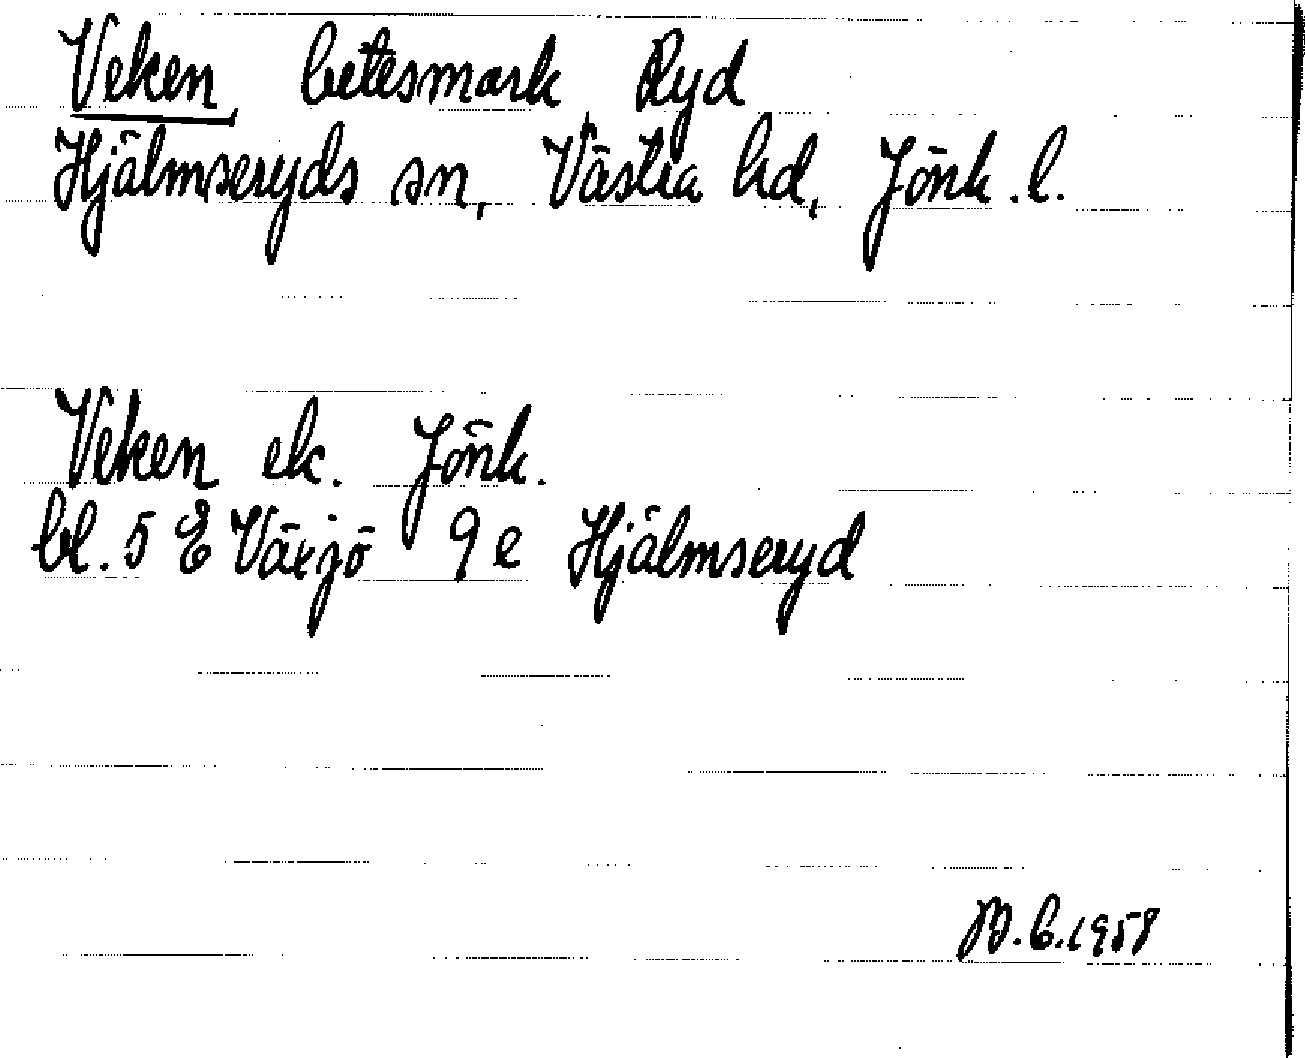 Veken betesmark Ryd
Hjälmseryds sn, Västra hd, Jönk. l.
Veken ek. Jönk.
bl. 5 E Växjö 9 e Hjälmseryd
1958